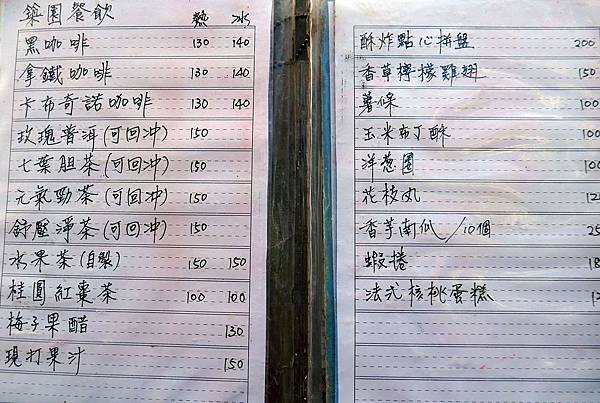 築園餐飲 熱 冰
黑咖啡 130 140
拿鐵咖啡 130 140
卡布奇諾咖啡 130 140
玫瑰普洱(可回冲) 150
七葉胆茶(可回冲) 150
元氣勁茶(可回冲) 150
舒壓淨茶(可回冲) 150
水果茶(自製) 150 150
桂圓紅棗茶 100 100
梅子果醋 130
現打果汁 150
酥炸點心拼盤 200
香草檸檬雞翅 150
薯條 100
玉米布丁酥 100
洋葱圈 100
花枝丸
香芋南瓜/10個
蝦捲
法式核桃蛋糕